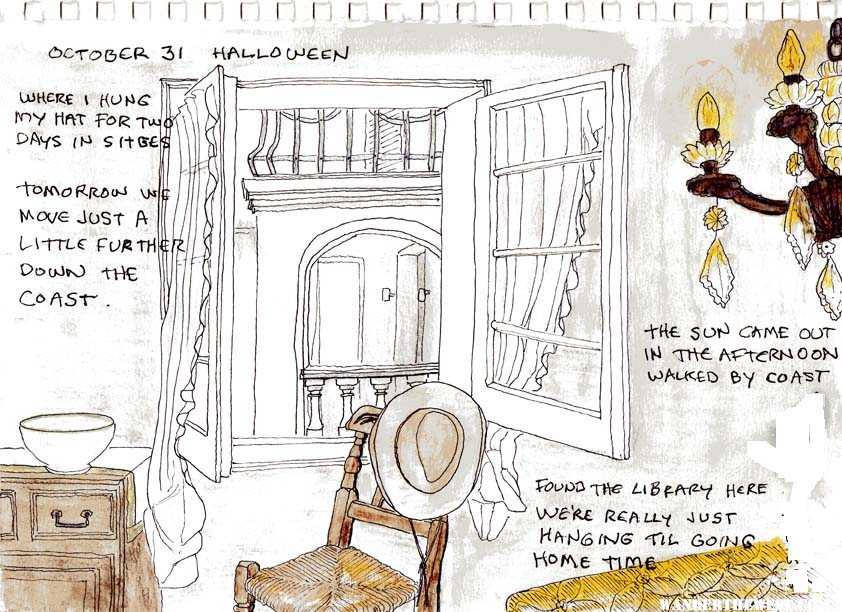 OCTOBER 31 HALLOWEEN
WHERE I HUNG
MY HAT FOR TWO
DAYS IN SITGES
TOMORROW WE
MOVE JUST A
LITTLE FURTHER
DOWN THE
COAST.
THE SUN CAME OUT
IN THE AFTERNOON
WALKED BY COAST
FOUND THE LIBRARY HERE
WE'RE REALLY JUST
HANGING TIL GOING
HOME TIME